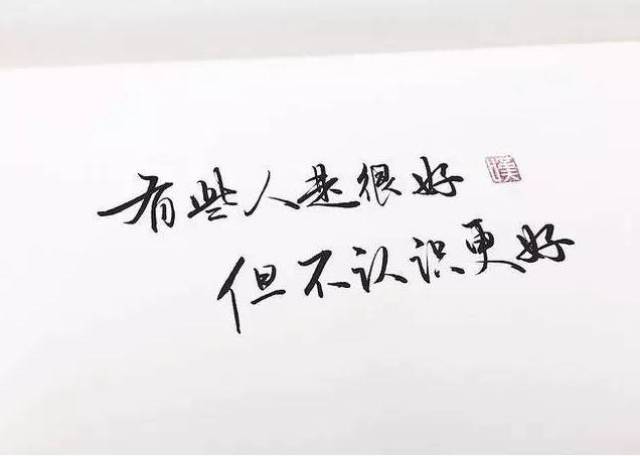 有些人是很好
但不认识更好